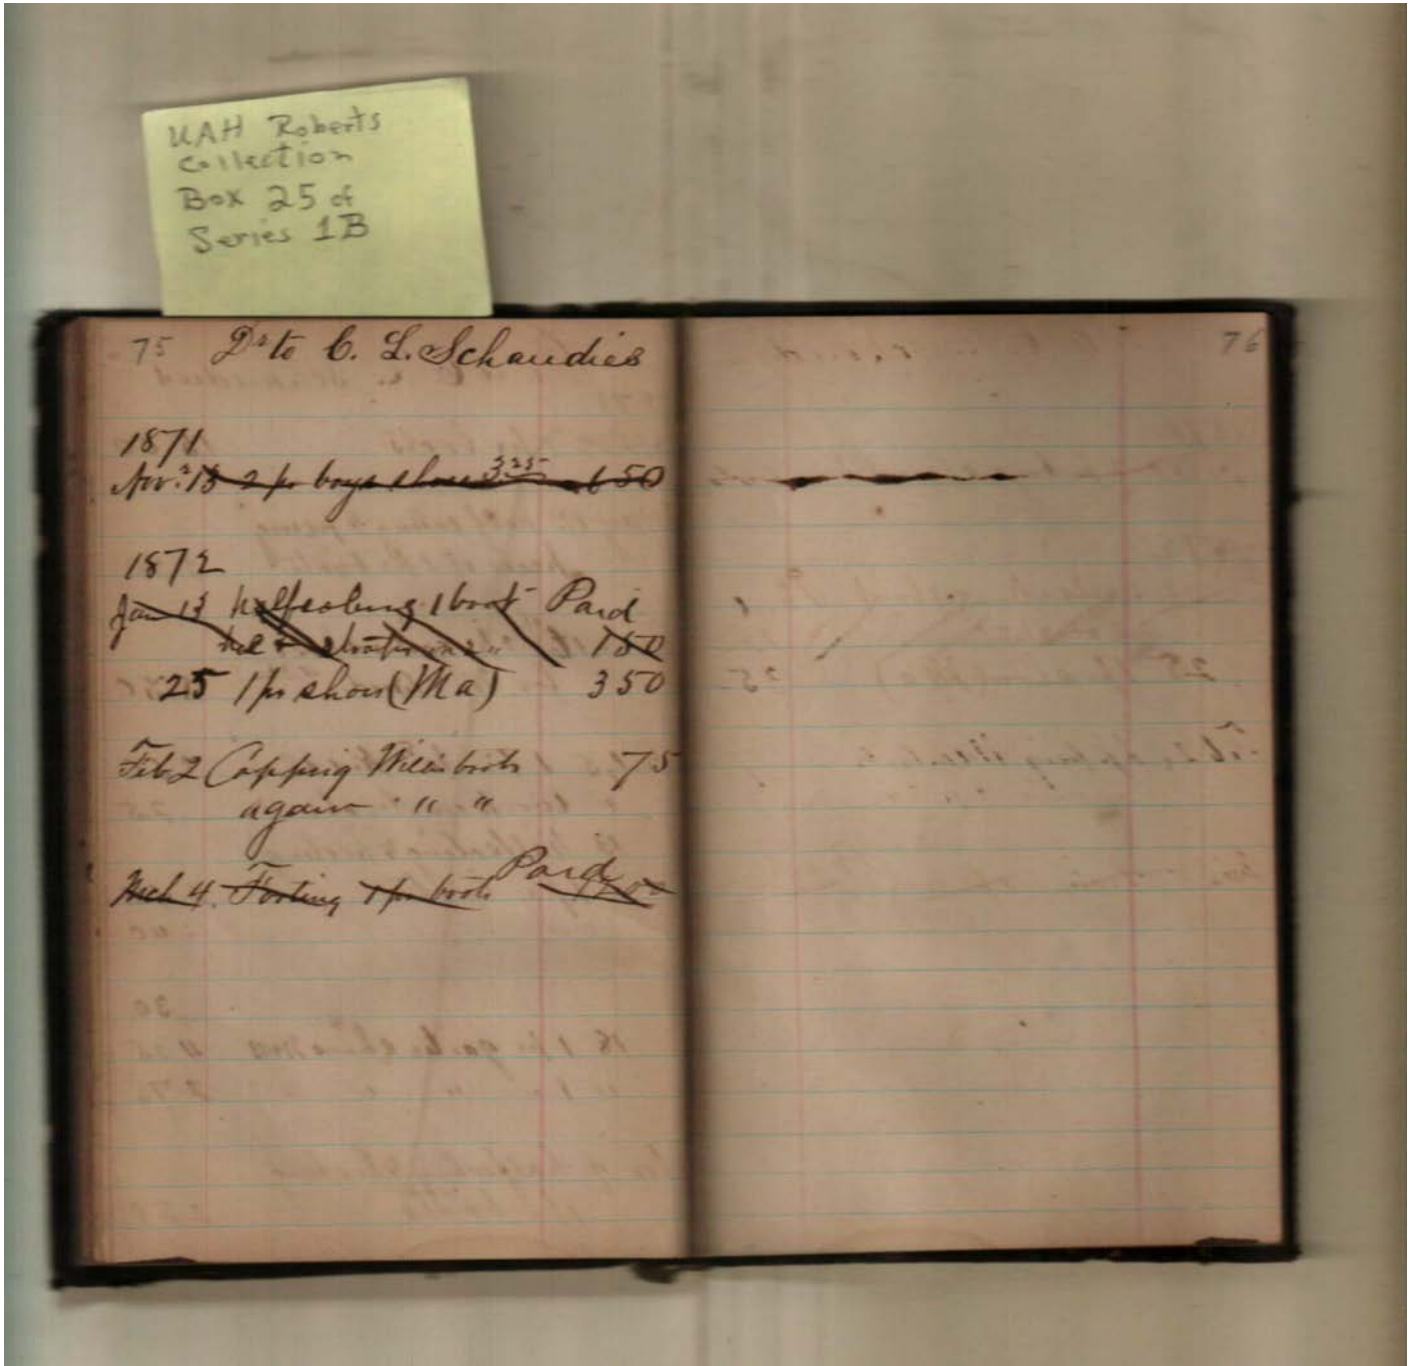 UAH Roberts
Collection
Box 25 of
Series 1B
75 Dr to C. L. Schaudies
76
1871
Nov. 13 2 pr boys shoes 3 25 6 50
1872
Jan 13 halfsoling 1 boot Paid
1 50
25 1 pr shoes (Ma) 3 50
Feb 2 Capping Willis boots 75
again " "
Mch 4 Footing 1 pr boots Paid